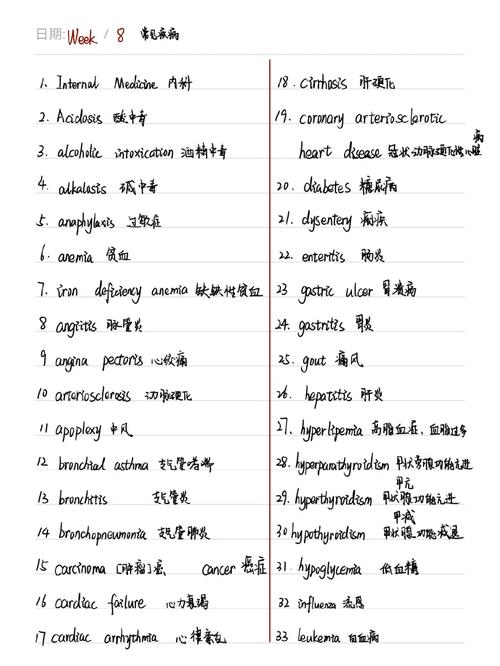 日期: Week / 8 常见疾病
1. Internal Medicine 内科
2. Acidosis 酸中毒
3. alcoholic intoxication 酒精中毒
4. alkalosis 碱中毒
5. anaphylaxis 过敏症
6. anemia 贫血
7. iron deficiency anemia 缺铁性贫血
8 angiitis 脉管炎
9 angina pectoris 心绞痛
10 arteriosclerosis 动脉硬化
11 apoplexy 中风
12 bronchial asthma 支气管哮喘
13 bronchitis 支气管炎
14 bronchopneumonia 支气管肺炎
15 carcinoma [肿瘤]癌 cancer 癌症
16 cardiac failure 心力衰竭
17 cardiac arrhythmia 心律紊乱
18. cirrhosis 肝硬化
19. coronary arteriosclerotic
heart disease 冠状动脉硬化性心脏病
20. diabetes 糖尿病
21. dysentery 痢疾
22. enteritis 肠炎
23 gastric ulcer 胃溃疡
24. gastritis 胃炎
25. gout 痛风
26. hepatitis 肝炎
27. hyperlipemia 高脂血症、血脂过多
28. hyperparathyroidism 甲状旁腺功能亢进
甲亢
29. hyperthyroidism 甲状腺功能亢进
甲减
30 hypothyroidism 甲状腺功能减退
31. hypoglycemia 低血糖
32 influenza 流感
33 leukemia 白血病